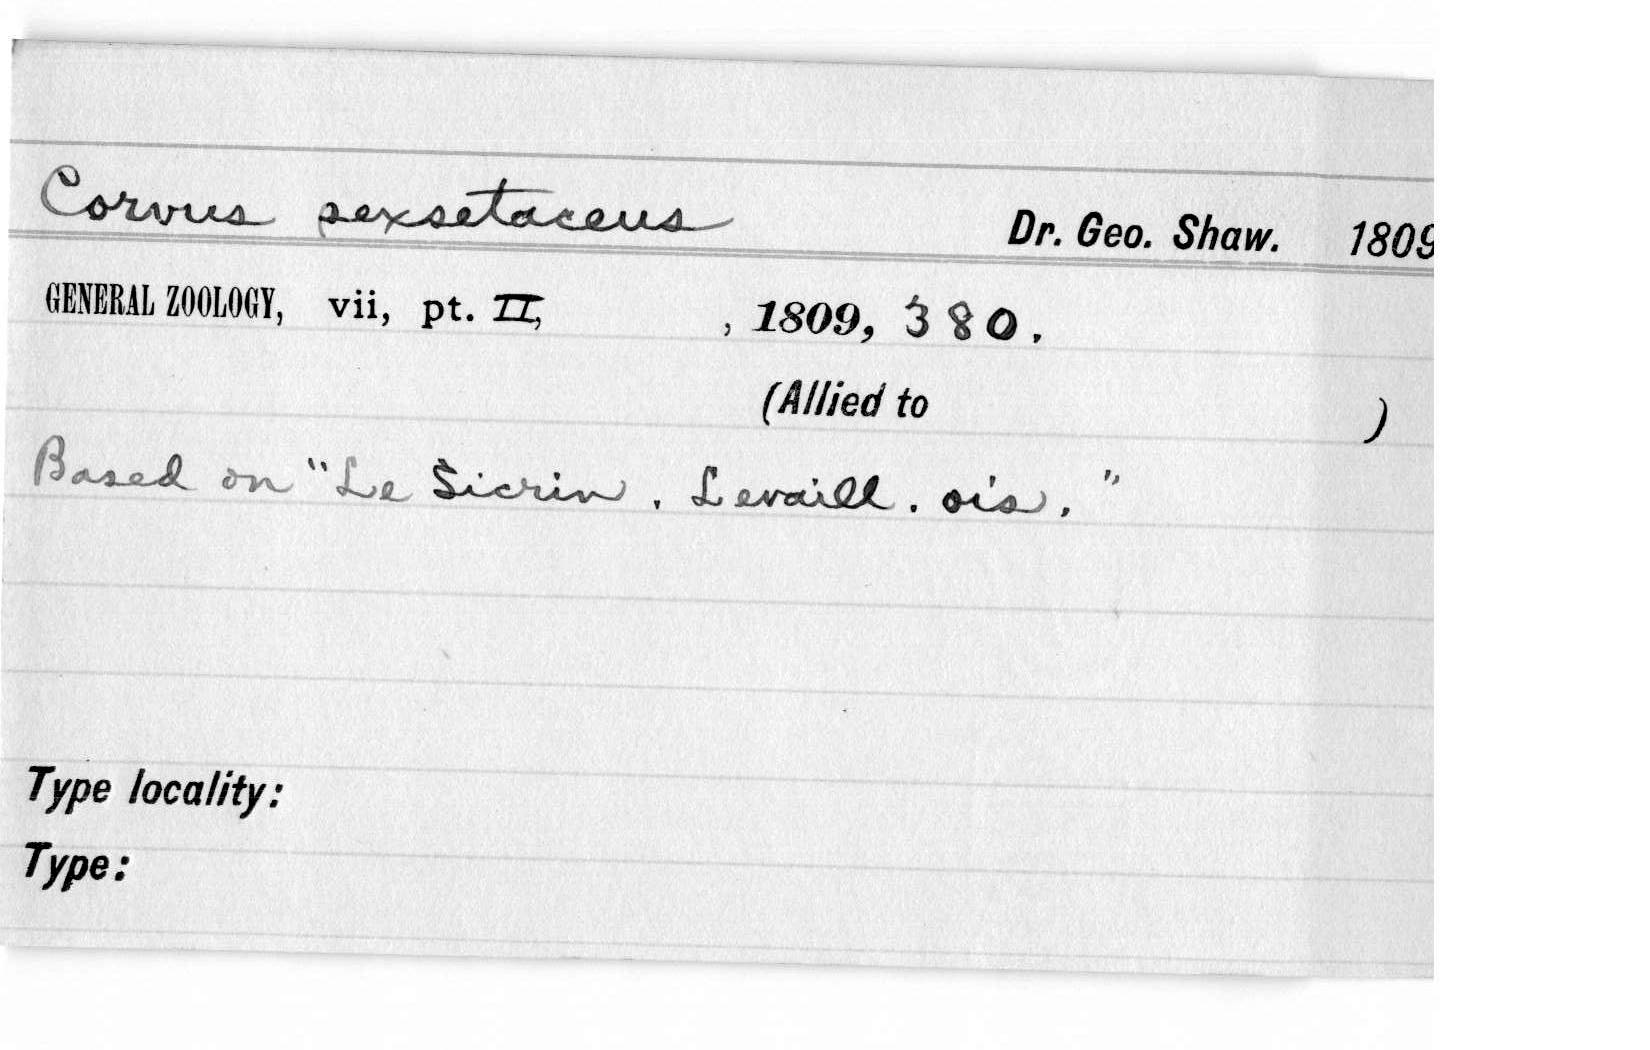 Corvus sexsetaceus Dr. Geo. Shaw. 1809
GENERAL ZOOLOGY, vii, pt. II, , 1809, 380.
(Allied to )
Based on "Le Sicrin. Levaill. ois."
Type locality:
Type: